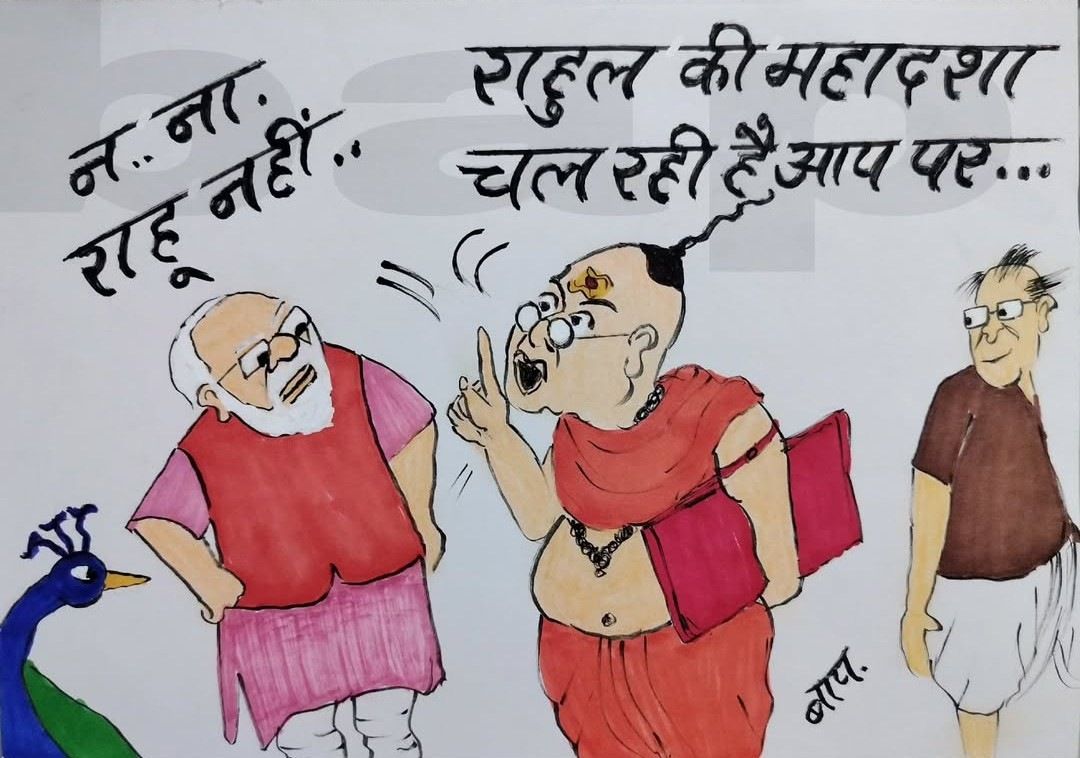 न.. ना.
राहू नहीं..
राहुल की महादशा
चल रही है आप पर...
बाप.
bap